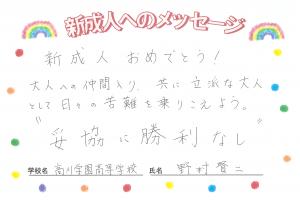 新成人へのメッセージ
新成人 おめでとう!
大人への仲間入り、共に立派な大人
として日々の苦難を乗りこえよう。
"妥協に勝利なし"
学校名 高川学園高等学校 氏名 野村賢二